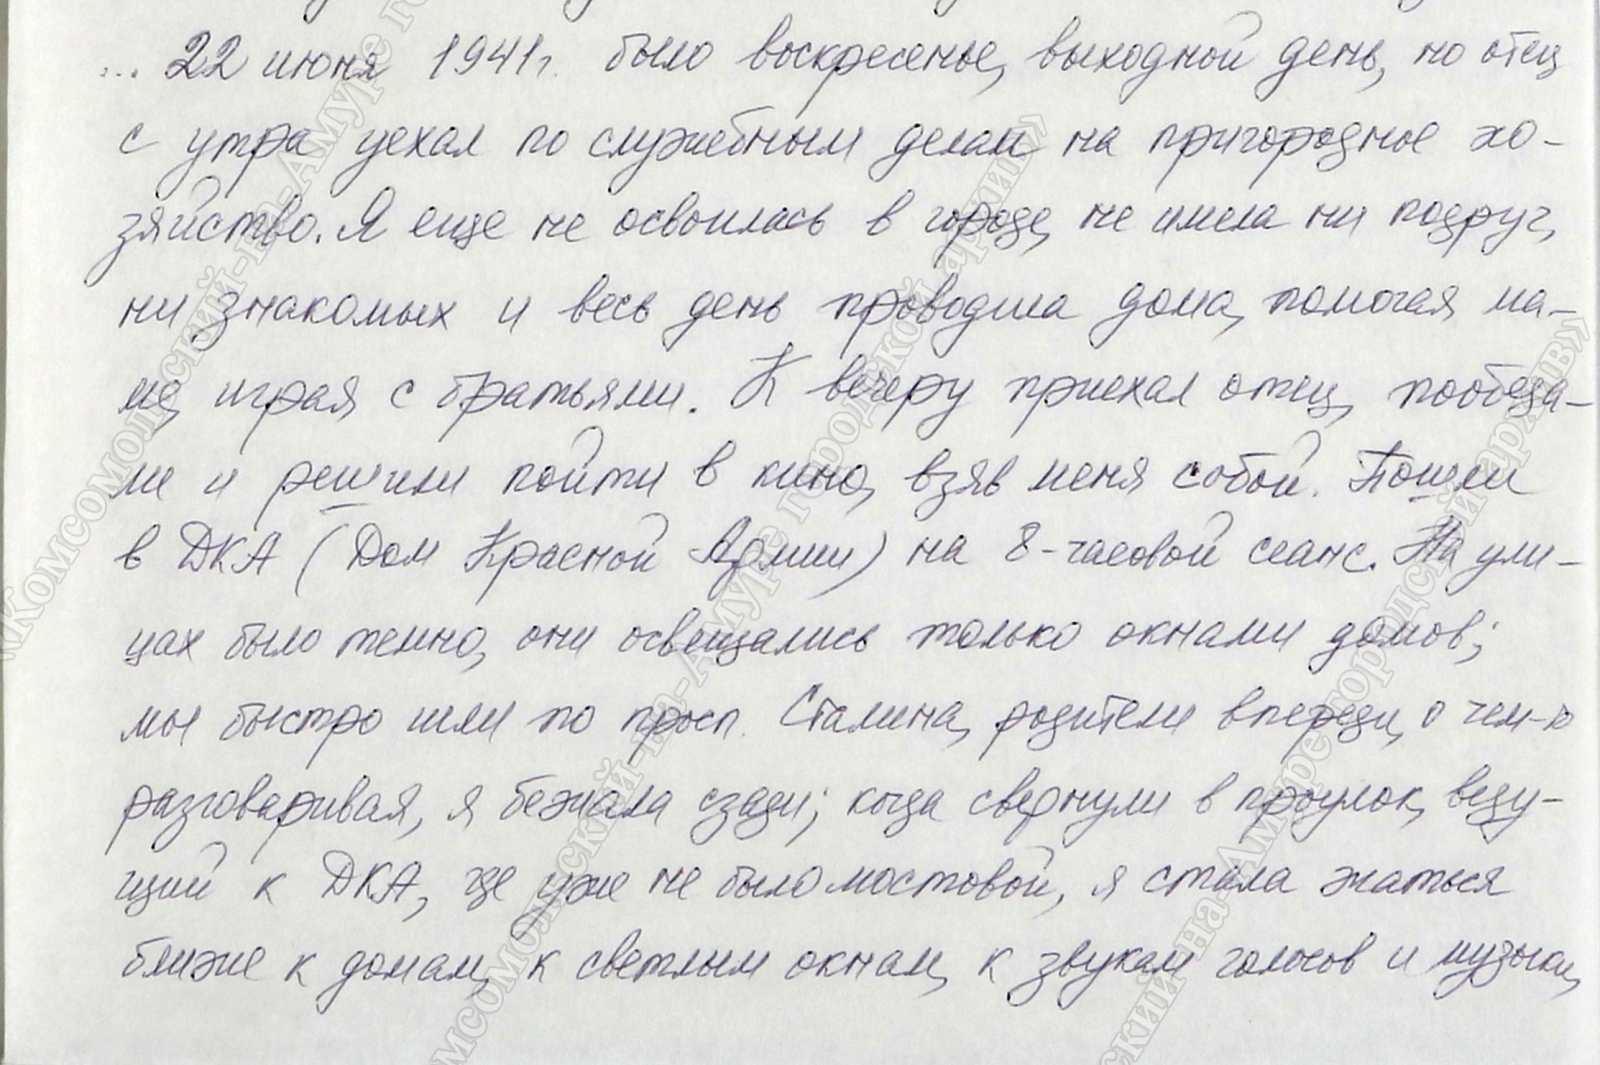 ... 22 июня 1941г. было воскресенье, выходной день, но отец
с утра уехал по служебным делам на пригородное хо-
зяйство. Я еще не освоилась в городе, не имела ни подруг,
ни знакомых и весь день проводила дома, помогая ма-
ме, играя с братьями. К вечеру приехал отец, пообеда-
ли и решили пойти в кино, взяв меня с собой. Пошли
в ДКА (Дом Красной Армии) на 8-часовой сеанс. На ули-
цах было темно, они освещались только окнами домов;
мы быстро шли по просп. Сталина, родители впереди, о чем-то
разговаривая, я бежала сзади; когда свернули в проулок, веду-
щий к ДКА, где уже не было мостовой, я стала жаться
ближе к домам, к светлым окнам, к звукам голосов и музыки,
«Комсомольский-на-Амуре городской архив»